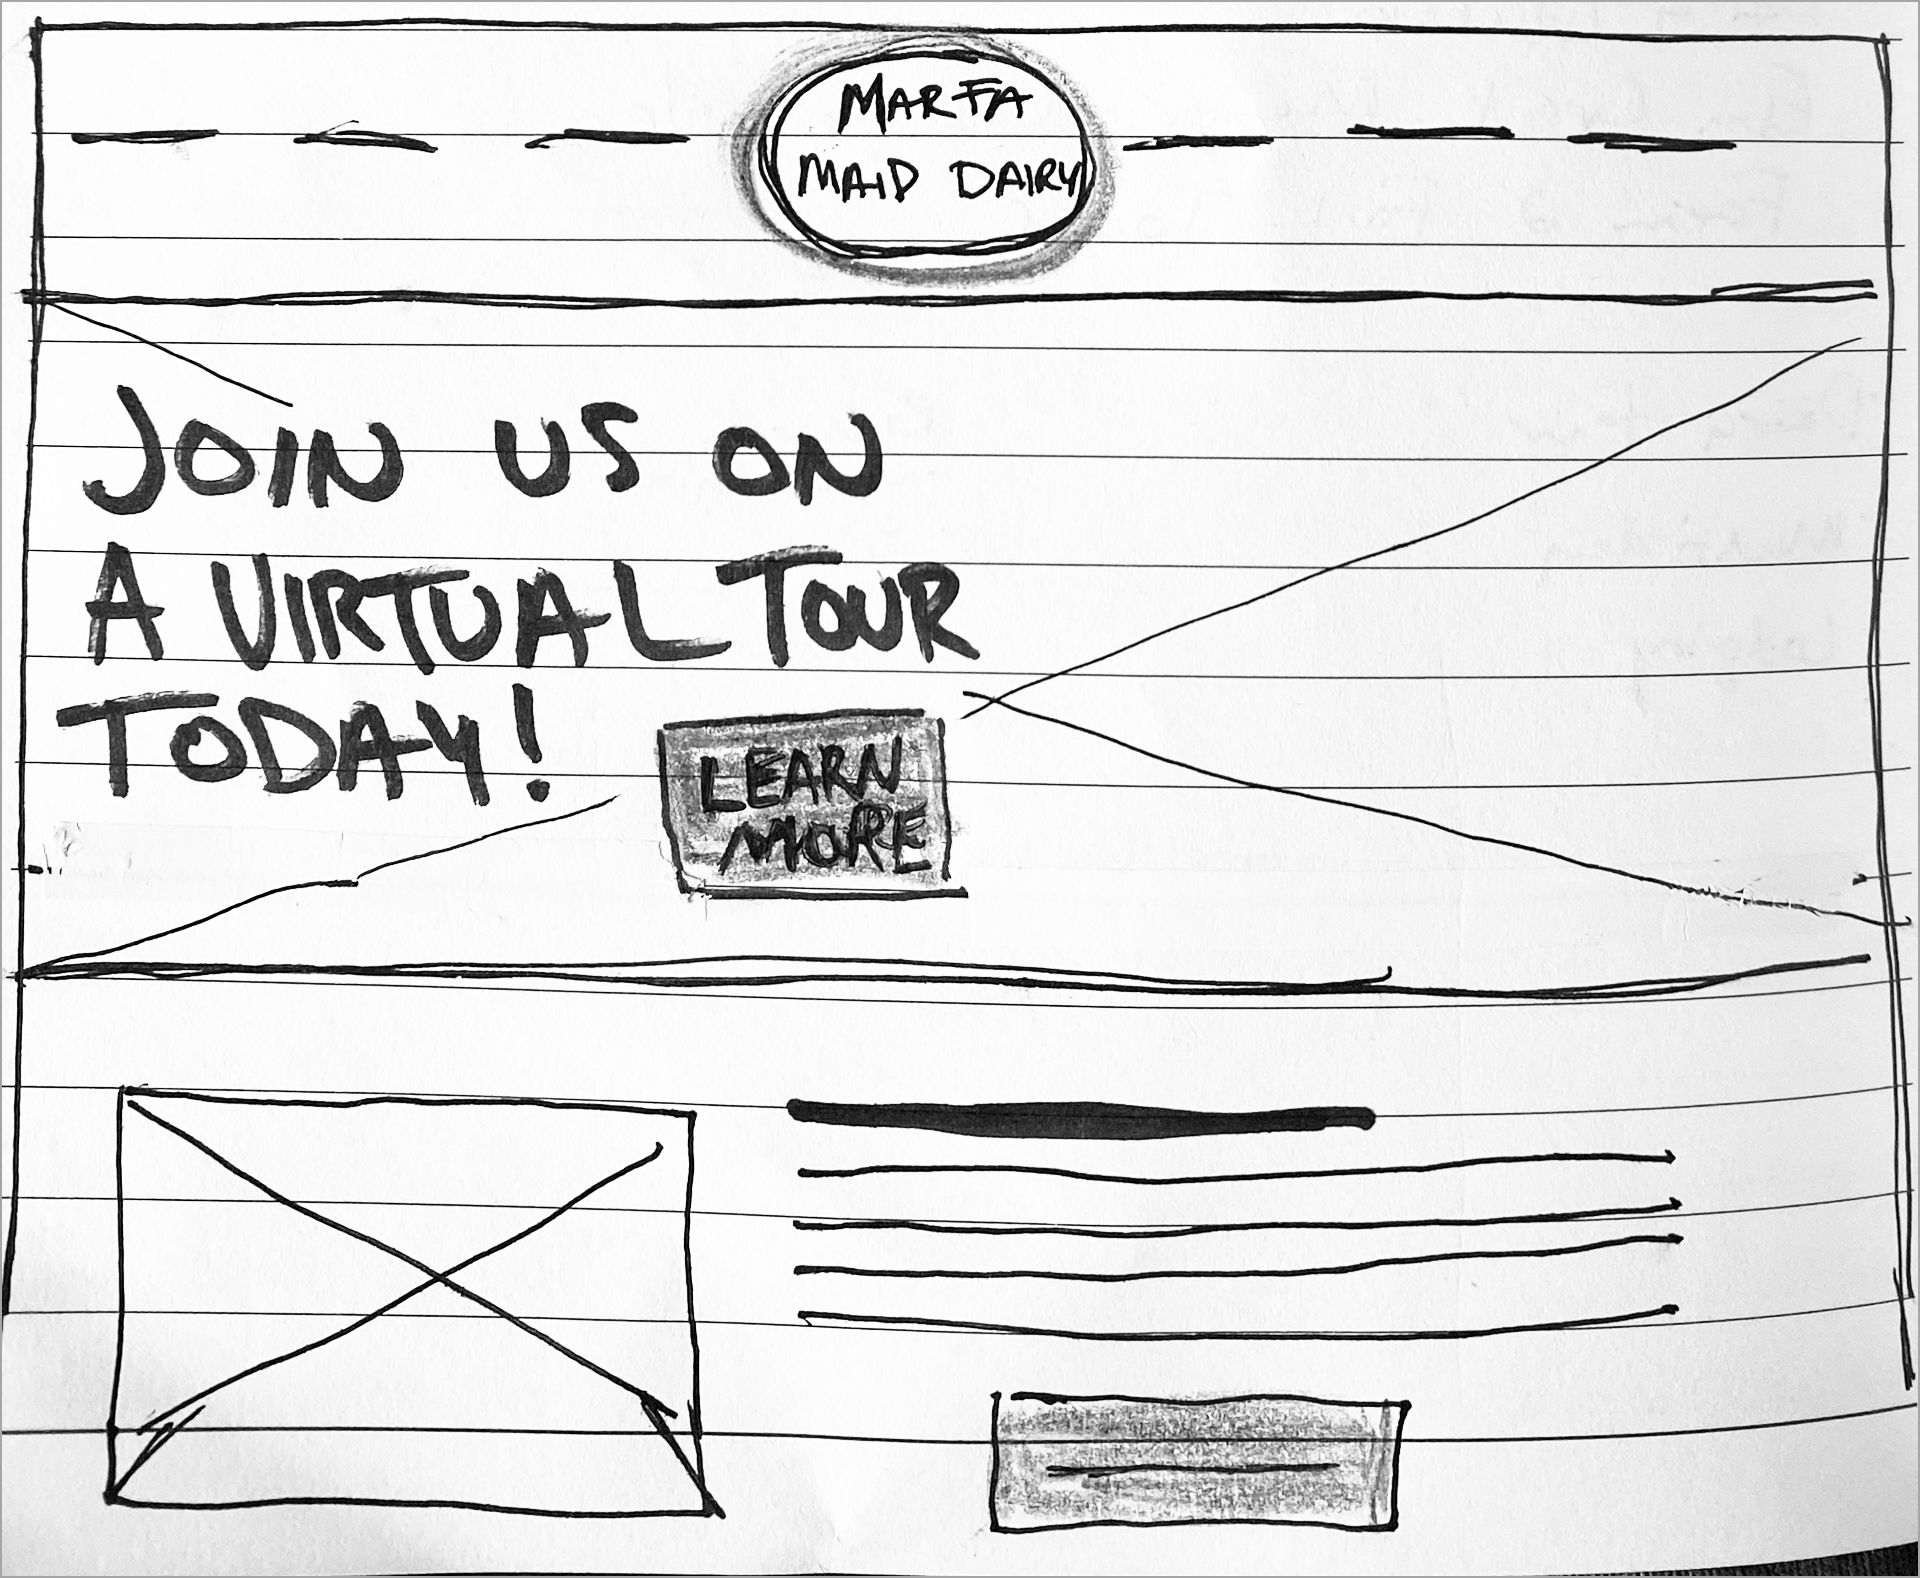 MARFA
MAID DAIRY
JOIN US ON
A VIRTUAL TOUR
TODAY!
LEARN
MORE